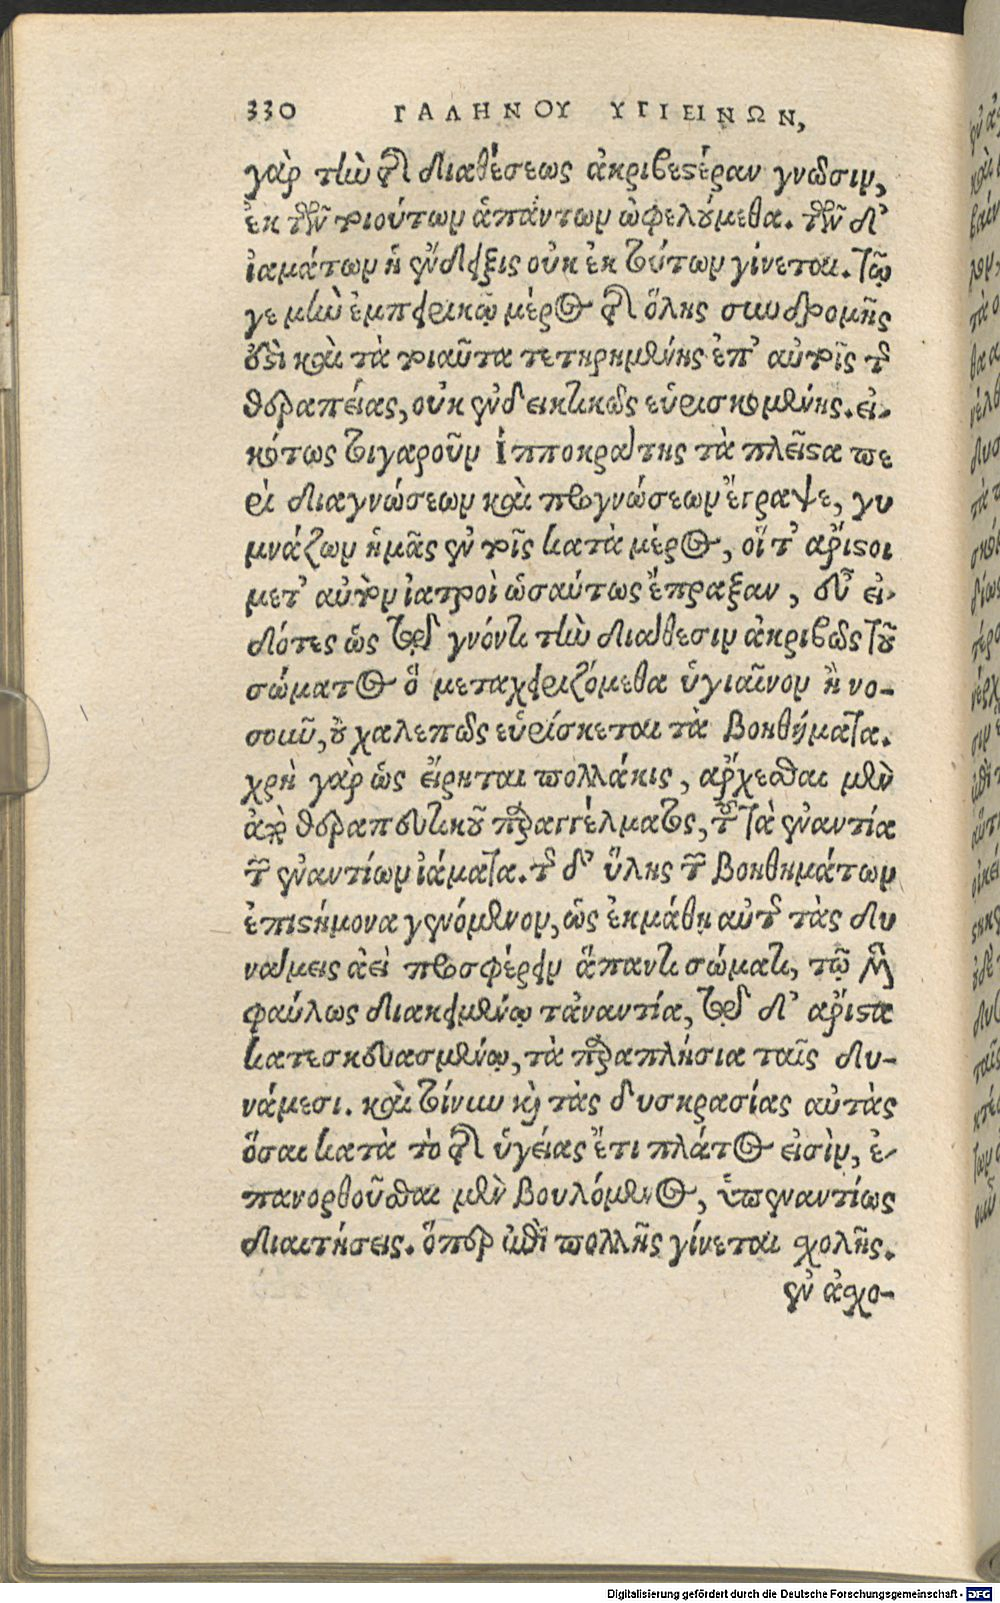 330 ΓΑΛΗΝΟΥ ΥΓΙΕΙΝΩΝ,
γὰρ τὴν τῆς διαθέσεως ἀκριβεστέραν γνῶσιν,
ἐκ τῶν τοιούτων ἁπάντων ὠφελούμεθα. τῶν δ᾽
ἰαμάτων ἡ ἔνδειξις οὐκ ἐκ τούτων γίνεται. τῷ
γε μὴν ἐμπειρικῷ μέρος τῆς ὅλης συνδρομῆς
ἐστὶ καὶ τὰ τοιαῦτα τετηρημένης ἐπ᾽ αὐτοῖς τῆς
θεραπείας, οὐκ ἐνδεικτικῶς εὑρισκομένης. εἰ-
κότως τοιγαροῦν Ἱπποκράτης τὰ πλεῖστα πε
ρὶ διαγνώσεων καὶ προγνώσεων ἔγραψε, γυ
μνάζων ἡμᾶς ἐν τοῖς κατὰ μέρος, οἵ τ᾽ ἄριστοι
μετ᾽ αὐτὸν ἰατροὶ ὡσαύτως ἔπραξαν, εὖ εἰ-
δότες ὡς τῷ γνόντι τὴν διάθεσιν ἀκριβῶς τοῦ
σώματος ὃ μεταχειριζόμεθα ὑγιαῖνον ἢ νο-
σοῦν, οὐ χαλεπῶς εὑρίσκεται τὰ βοηθήματα.
χρὴ γὰρ ὡς εἴρηται πολλάκις, ἄρχεσθαι μὲν
ἀπὸ θεραπευτικοῦ παραγγέλματος, τοῦ τὰ ἐναντία
τῶν ἐναντίων ἰάματα. τῆς δ᾽ ὕλης τῶν βοηθημάτων
ἐπιστήμονα γενόμενον, ὡς ἐκμάθῃ αὐτῆς τὰς δυ
νάμεις ἀεὶ προσφέρειν ἅπαντι σώματι, τῷ μὲν
φαύλως διακειμένῳ τἀναντία, τῷ δ᾽ ἄριστα
κατεσκευασμένῳ, τὰ παραπλήσια ταῖς δυ-
νάμεσι. καὶ τοίνυν καὶ τὰς δυσκρασίας αὐτὰς
ὅσαι κατὰ τὸ τῆς ὑγείας ἔτι πλάτος εἰσὶν, ἐ-
πανορθοῦσθαι μὲν βουλόμενος, ὑπεναντίως
διαιτήσεις. ὅπερ ἐπὶ πολλῆς γίνεται σχολῆς.
ἐν ἀσχο-
Digitalisierung gefördert durch die Deutsche Forschungsgemeinschaft - DFG